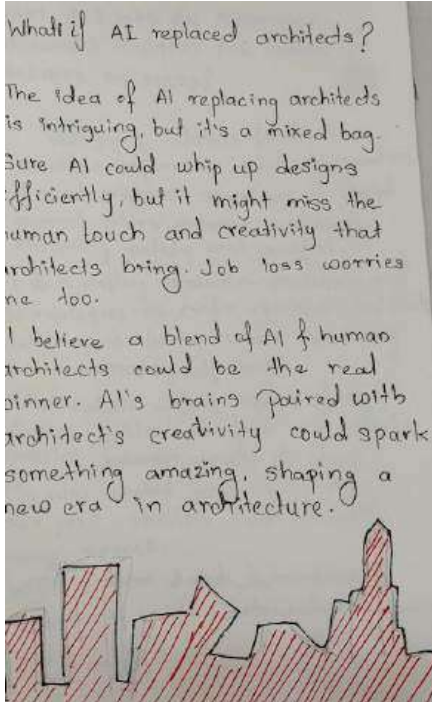 Whats if AI replaced architects?
The idea of AI replacing architects
is intriguing, but it's a mixed bag.
Sure AI could whip up designs
efficiently, but it might miss the
human touch and creativity that
architects bring. Job loss worries
me too.
I believe a blend of AI & human
architects could be the real
winner. AI's brains paired with
architect's creativity could spark
something amazing, shaping a
new era in architecture.